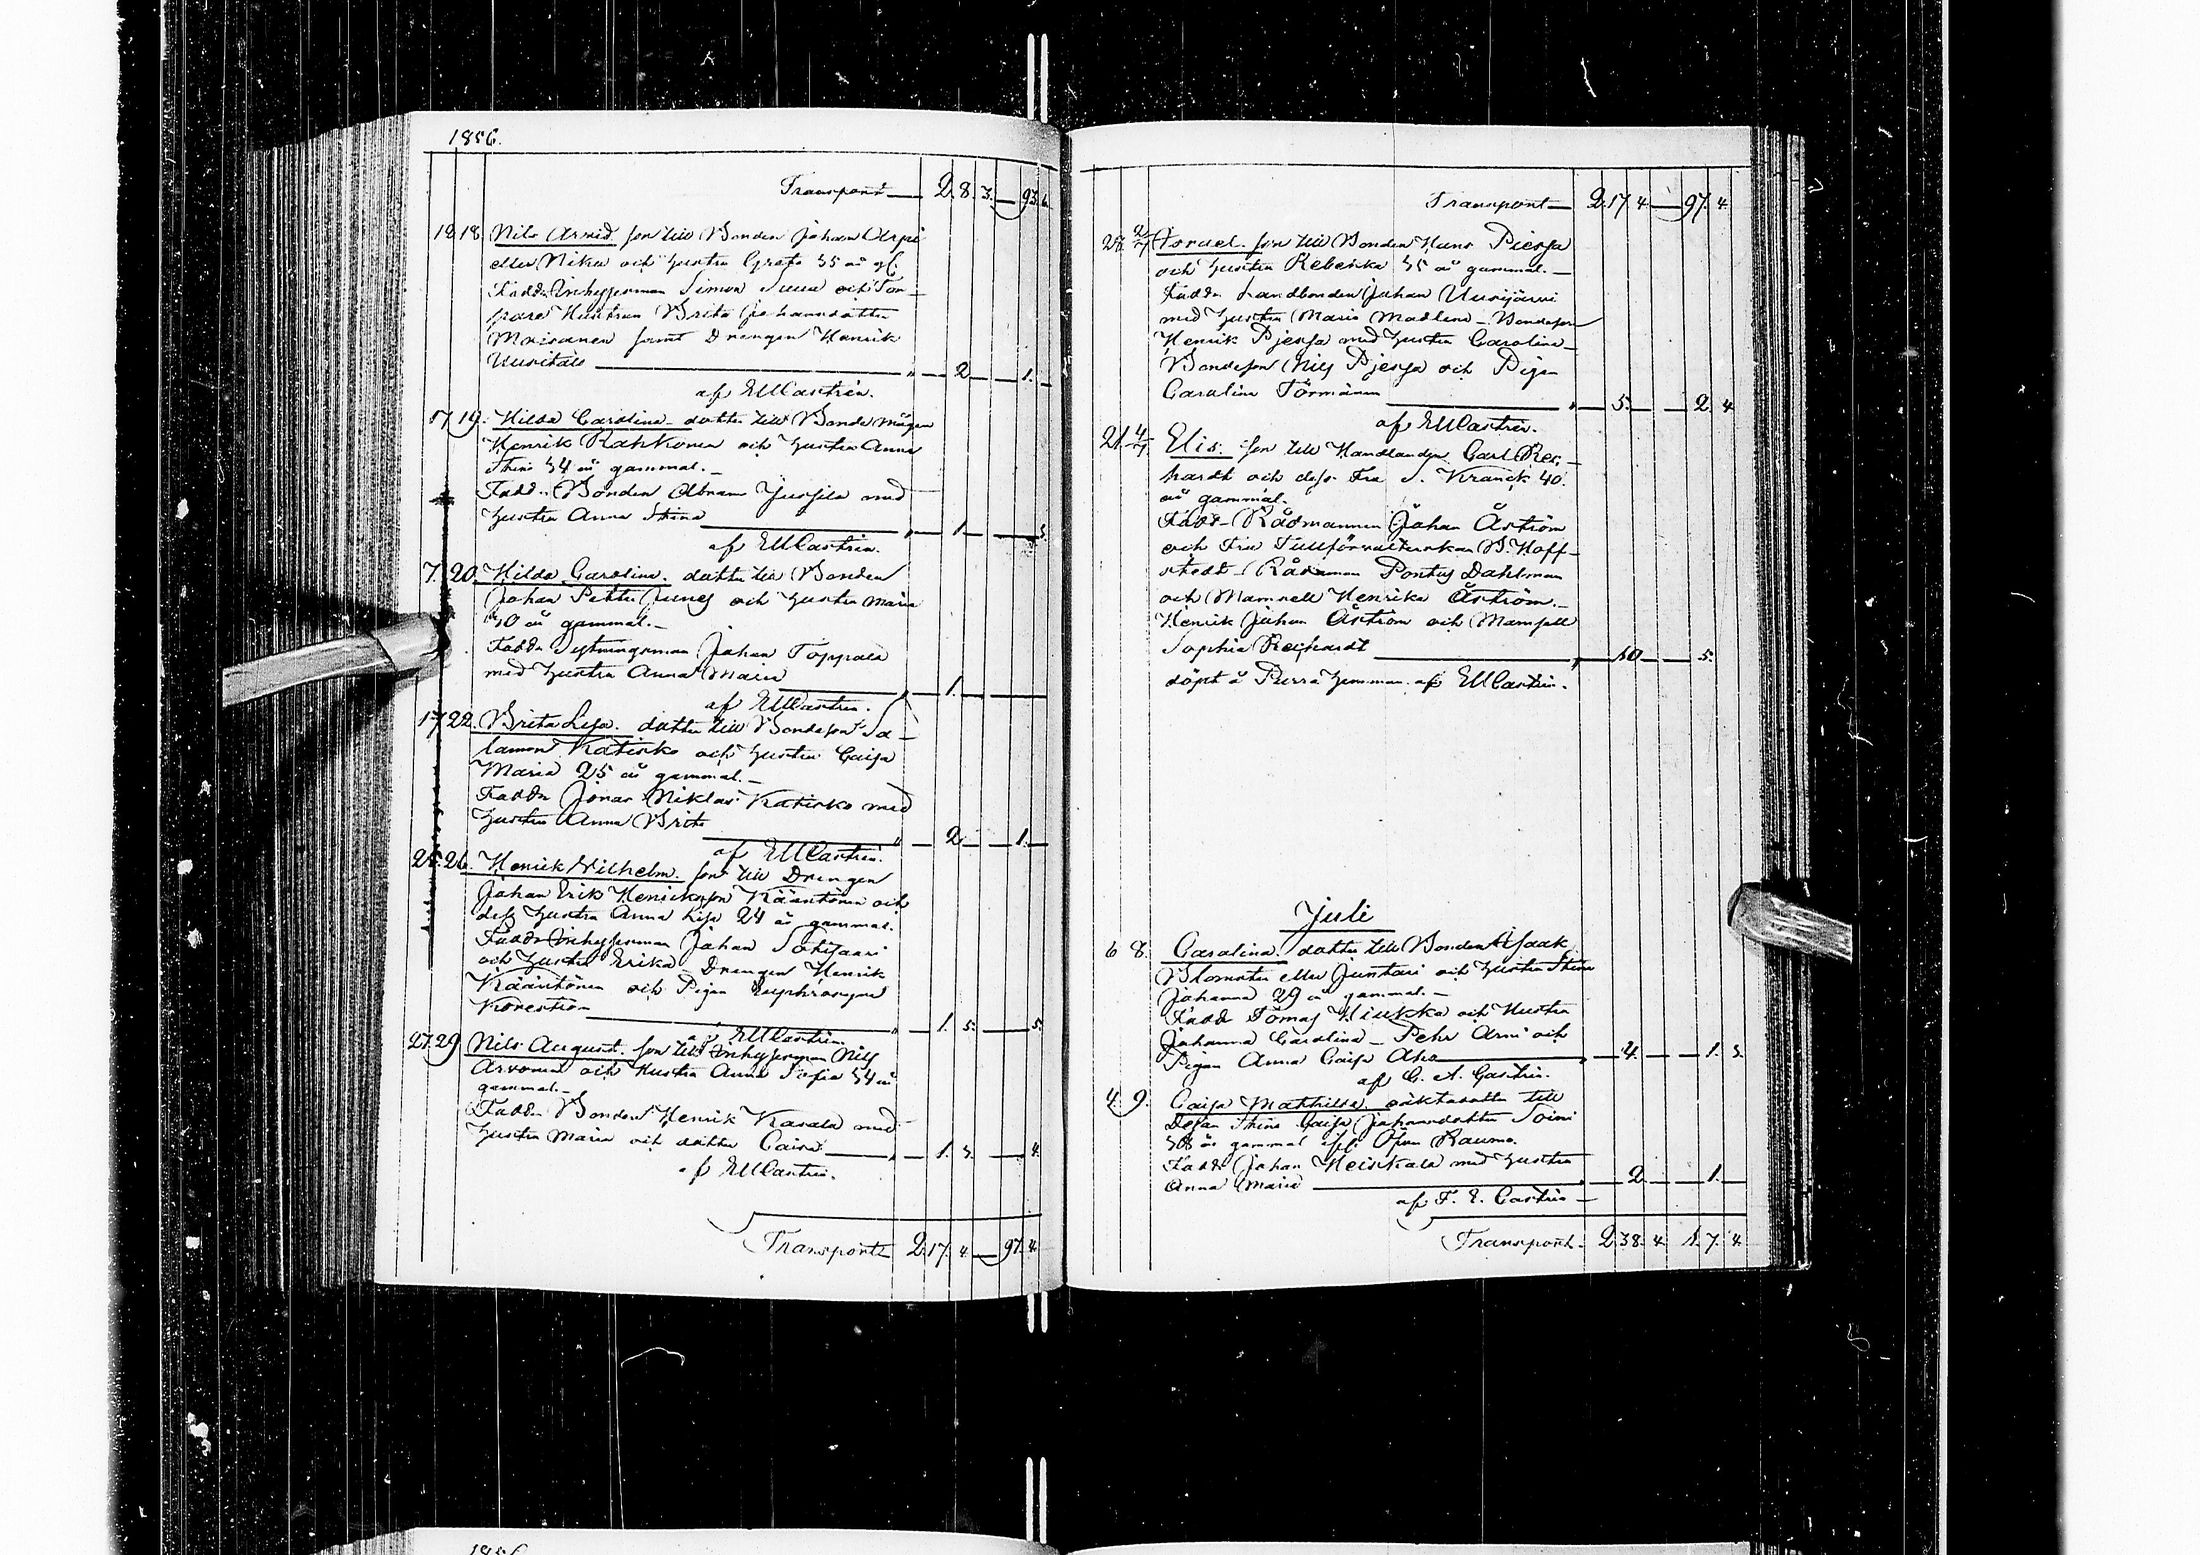 1856.
Transport 2. 8. 3. 93.
18. 18. Nils Arvid son till Bonden Johan Arpi
eller Niku och hustru Greta 35 år gl.
Fadd. Inhyseman Simon och Tor-
pare Hustrun Brita Johansdotter
samt Drengen Henrik
Uusitalo 2. 1.
af EMCastrén.
17. 19. Hilda Carolina dotter till Bonde mågen
Henrik Rahkonen och hustru Anna
Stina 34 år gammal.
Fadd. Bonden Abram Jussila med
hustru Anna Stina 1. 3.
af EMCastrén.
7. 20. Hilda Carolina. dotter till Bonden
Johan Petter Junes och hustru Maria
40 år gammal.
Faddr Sextningsman Johan Toppala
med hustru Anna Maria 1.
af EMCastrén.
17. 22. Brita Lisa. dotter till Bondeson Sa-
lamon Katisko och hustru Caisa
Maria 25 år gammal.
Faddr Jonas Niklas Katisko med
hustru Anna Brita 2. 1.
af EMCastrén.
25. 26. Henrik Wilhelm. son till Drengen
Johan Erik Henriksson Kääntönen och
dess hustru Anna Lisa 24 år gammal.
Faddr Inhyseman Johan Sohijaari
och hustru Erika Drengen Henrik
Kääntönen och Pigan Euphrosyne
1. 5. 5.
af EMCastrén.
27. 29. Nils August. son till Inhyseman Nils
Arvonen och Hustru Anna Sofia 34 år
gammal.
Faddr Bonden Henrik Kasala med
hustru Maria och dotter Caisa 1. 3. 4.
af EMCastrén.
Transport 2. 17. 4. 97. 4.
Transport 2. 17. 4. 97. 4.
28. 2/7 Israel. son till Bonden Hans Piessa
och hustru Rebecka 35 år gammal.
Faddr Landbonden Johan Uusijärvi
med hustru Maria Madlena Bondeson
Henrik Pjessa med hustru Carolina
Bondeson Nils Pjessa och Pigan
Carolina Törmänen 5. 2. 4.
af EMCastrén.
21. 4/7 Elis. son till Handlanden Carl Rec-
hardt och dess Fru S. Kranck 40.
år gammal.
Fadd. Rådmannen Johan Åström
och Fru Tullförvalterskan B. Hoff-
stedt Rådman Pontus Dahlman
och Mamsell Henrika Åström.
Henrik Johan Åström och Mamsell
Sophia Rechardt 10. 5.
döpt å Purra hemman af EMCastrén.
Juli
6. 8. Carolina. dotter till Bonden Isaak
Blomster eller Juntari och hustru Stina
Johanna 29 år gammal.
Fadd Tomas Kiukka och Hustru
Johanna Carolina Pehr Arni och
Pigan Anna Caisa Aho 4. 1. 3.
af C. A. Castrén.
4. 9. Caisa Mathilda oäkta dotter till
Dejan Stina Caisa Johansdotter Soini
38 år gammal ifr. Öfver Rauma.
Faddr Johan Heiskala med hustru
Anna Maria 2. 1.
af F. E. Castrén
Transport. 2. 38. 4. 1. 7. 4.
1856